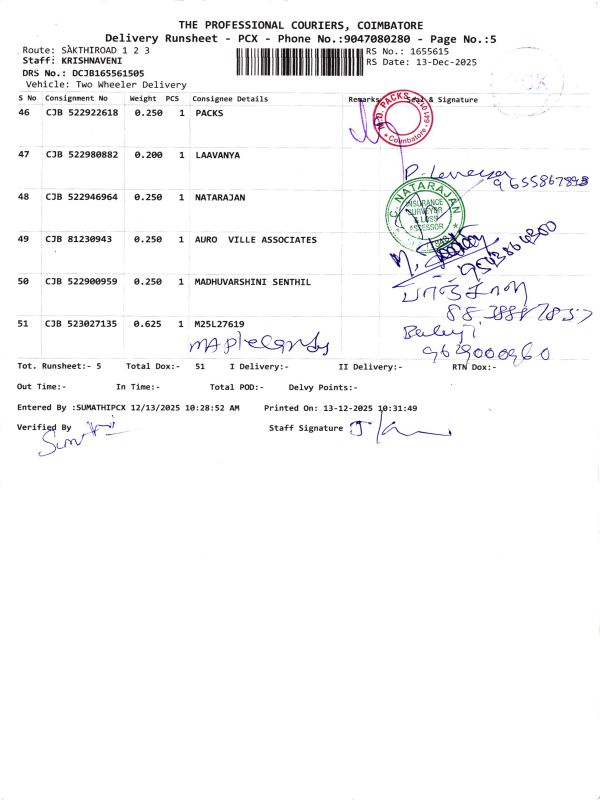 THE PROFESSIONAL COURIERS, COIMBATORE
Delivery Runsheet - PCX - Phone No.:9047080280 - Page No.:5
Route: SAKTHIROAD 1 2 3 RS No.: 1655615
Staff: KRISHNAVENI RS Date: 13-Dec-2025
DRS No.: DCJB165561505
Vehicle: Two Wheeler Delivery
PCX
S No Consignment No Weight PCS Consignee Details Remarks Seal & Signature
46 CJB 522922618 0.250 1 PACKS
PACKS
Coimbatore
47 CJB 522980882 0.200 1 LAAVANYA
48 CJB 522946964 0.250 1 NATARAJAN
C. NATARAJAN
INSURANCE
SURVEYOR
& LOSS
ASSESSOR
49 CJB 81230943 0.250 1 AURO VILLE ASSOCIATES
50 CJB 522900959 0.250 1 MADHUVARSHINI SENTHIL
51 CJB 523027135 0.625 1 M25L27619
9629000960
Tot. Runsheet:- 5 Total Dox:- 51 I Delivery:- II Delivery:- RTN Dox:-
Out Time:- In Time:- Total POD:- Delvy Points:-
Entered By :SUMATHIPCX 12/13/2025 10:28:52 AM Printed On: 13-12-2025 10:31:49
Verified By Staff Signature